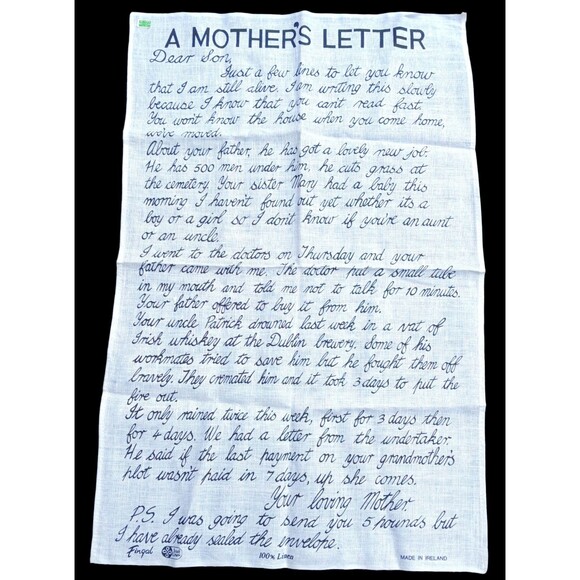 A MOTHER'S LETTER
Dear Son,
Just a few lines to let you know
that I am still alive. I am writing this slowly
because I know that you can't read fast.
You won't know the house when you come home,
we've moved.
About your father, he has got a lovely new job.
He has 500 men under him, he cuts grass at
the cemetery. Your sister Mary had a baby this
morning I haven't found out yet whether its a
boy or a girl so I don't know if you're an aunt
or an uncle.
I went to the doctors on Thursday and your
father came with me. The doctor put a small tube
in my mouth and told me not to talk for 10 minutes.
Your father offered to buy it from him.
Your uncle Patrick drowned last week in a vat of
Irish whiskey at the Dublin brewery. Some of his
workmates tried to save him but he fought them off
bravely. They cremated him and it took 3 days to put the
fire out.
It only rained twice this week, first for 3 days then
for 4 days. We had a letter from the undertaker.
He said if the last payment on your grandmother's
plot wasn't paid in 7 days, up she comes.
Your loving Mother.
P.S. I was going to send you 5 pounds but
I have already sealed the envelope.
Fingal
100% Linen
MADE IN IRELAND